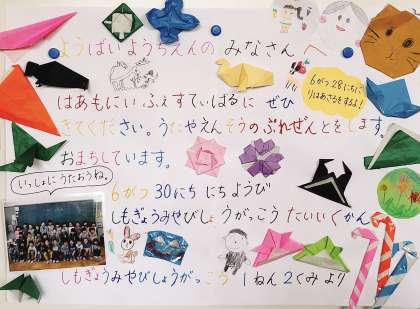 ようばいようちえんの みなさん へ
6がつ28にちに
りはあさるをするよ!
はあもにい ふぇすてぃばるに ぜひ
きてください。うたやえんそうのぷれぜんとをします。
おまちしています。
いっしょにうたおうね。
6がつ 30にち にちようび
しもぎょうみやびしょうがっこう たいいくかん
しもぎょうみやびしょうがっこう 1ねん2くみ より